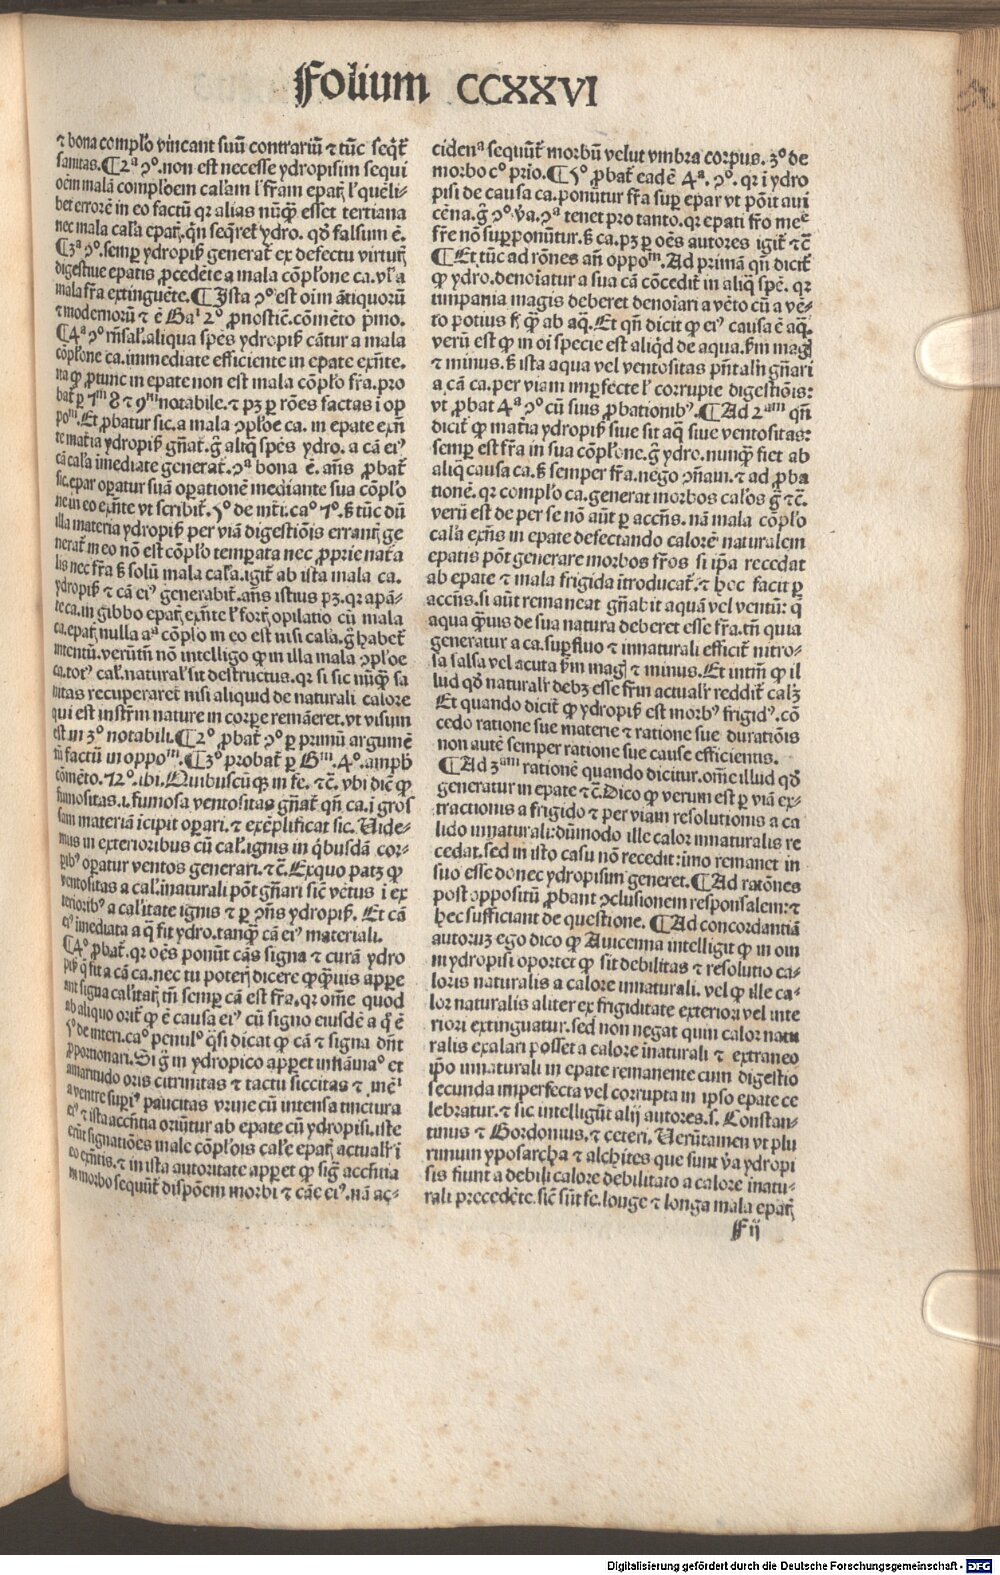 Folium CCXXVI
⁊ bona complo vincant suū contrariū ⁊ tūc seqͥt̄
sanitas. ¶ 2ª ꝯº. non est necesse ydropisim sequi
oēm malā comploem calam l' fr̄am epat̄ꝫ l' queli-
bet errorē in eo factū qr alias nūꝙ̄ esset tertiana
nec mala cal'a epat̄ꝫ. qn̄ seqret̄ ydro. qđ falsum ē.
¶ 3ª ꝯº. semꝑ ydropis̄ generat̄ ex defectu virtut̄ꝫ
digestiue epatis ꝓcedēte a mala cōplone ca. vl' a
mala fr̄a extinguēte. ¶ Ista ꝯº est oīm ātiquorū
⁊ modernorū ⁊ ē Gaˡ 2º ꝓnostic̄. cōmēto pͥmo.
¶ 4ª ꝯº rn̄sal'. aliqua spēs ydropis̄ cātur a mala
cōplone ca. immediate efficiente in epate exn̄te.
na ꝙ ꝓtunc in epate non est mala cōplo fr̄a. pro
bat̄ ꝑ 7ᵐ 8 ⁊ 9ᵐ notabile. ⁊ pꝫ ꝑ rōes factas i op
poᵐ. Et ꝓbatur sic. a mala ꝯploe ca. in epate exn̄
te mat̄ia ydropis̄ gn̄at̄. ḡ aliq̄ spēs ydro. a cā ei⁹
cā cal'a īmediate generat̄. ꝯª bona ē. an̄s ꝓbat̄
sic. epar oꝑatur suā oꝑationē mediante sua cōplo
ne in eo exn̄te vt scribit̄. 5º de int̄i. caº 7º. s̄ tūc dū
illa materia ydropis̄ per viā digestiōis errant̄ꝫ ge
nerat̄ in eo nō est cōplo temꝑata nec ꝓprie nat̄a
lis nec fr̄a s̄ solū mala cal'a. igit̄ ab ista mala ca.
ydropis̄ ⁊ cā ei⁹ generabit̄. an̄s istius pꝫ. qr apā-
te ca. in gibbo epat̄ꝫ exn̄te l' fort̄ꝫ opilatio cū mala
ca. epat̄ꝫ nulla aª cōplo in eo est nisi cal'a. ḡ habet̄
intentū. verūtn̄ nō intelligo ꝙ in illa mala ꝯploe
ca. tot⁹ cal'. natural' sit destructus. qr si sic nūꝙ̄ sa
nitas recuperaret̄ nisi aliquid de naturali calore
qui est instr̄m nature in corꝑe remāeret. vt visum
est in 3º notabili. ¶ 2º ꝓbat̄ ꝯº ꝑ primū argumē
tū factū in oppoᵐ. ¶ 3º probat̄ ꝑ Gᵐ. 4º. amph̄
cōmēto. 72º. ibi. Quibuscūqꝫ in fe. ⁊c̄. vbi dic̄ ꝙ
fumositas. i. fumosa ventositas gn̄at̄ qn̄ ca. i gros
sam materiā īcipit oꝑari. ⁊ exēplificat sic. Vide-
mus in exterioribus cū cal'. ignis in q̄busdā cor-
ꝑib⁹ oꝑatur ventos generari. ⁊c̄. Exquo patꝫ ꝙ
ventositas a cal'. inaturali pōt gn̄ari sic̄ vētus i ex
teriorib⁹ a cal'itate ignis ⁊ ꝑ ꝯn̄s ydropis̄. Et cā
ei⁹ imediata a q̄ fit ydro. tanꝙ̄ cā ei⁹ materiali.
¶ 4º ꝓbat̄. qr oēs ponūt cās signa ⁊ curā ydro
pis̄ q̄ fit a cā ca. nec tu poteri dicere ꝙꝙ̄uis appe
ant signa cal'itat̄ꝫ tn̄ semꝑ cā est fr̄a. qr om̄e quod
ab aliquo orit̄ ꝙ ē causa ei⁹ cū signo eiusdē a q̄ ē
5º de interi. caº penulº q̄si dicat ꝙ cā ⁊ signa dn̄t
ꝓportionari. Si ḡ in ydropico apꝑet inflāmaº et
amaritudo oris citrinitas ⁊ tactu siccitas ⁊ inēˡ
a ventre supi⁹ paucitas vrine cū intensa tinctura
ei⁹ ⁊ ista accn̄tia oriūtur ab epate cū ydropisi. iste
erūt signatiōes male cōplōis cal'e epat̄ꝫ actualr̄ i
eo exn̄tis. ⁊ in ista autoritate apꝑet ꝙ sigͣ accn̄tia
in morbo sequūt̄ dispōem morbi ⁊ cāe ei⁹. nā ac-
cidenª sequūt̄ morbū velut vmbra corpus. 3º de
morbo cº prio. ¶ 5º ꝓbat̄ eadē 4ª. ꝯº. qr i ydro
pisi de causa ca. ponūtur fr̄a suꝑ epar vt pōit aui
cēna. ḡ ꝯº. v̄a. ꝯª tenet pro tanto. qr epati fr̄o meᵉ
fr̄e nō suꝑponūtur. s̄ ca. pꝫ ꝑ oēs autores igit̄ ⁊c̄
¶ Et tūc ad rōnes an̄ oppoᵐ. Ad primā qn̄ dicit̄
ꝙ ydro. denoīatur a sua cā cōcedit̄ in aliq̄ spē. qr
timpania magis deberet denoīari a vēto cū a vē-
to potius fit ꝙ̄ ab aq̄. Et qn̄ dicit ꝙ ei⁹ causa ē aq̄.
verū est ꝙ in oi specie est aliqd̄ de aqua. s̄m magꝫ
⁊ minus. s̄ ista aqua vel ventositas pn̄t aln̄ gn̄ari
a cā ca. per viam imꝑfecte l' corrupte digestiōis:
vt ꝓbat 4ª ꝯº cū suis ꝓbationib⁹. ¶ Ad 2ᵃᵐ qn̄
dicit̄ ꝙ mat̄ia ydropis̄ siue sit aq̄ siue ventositas:
semꝑ est fr̄a in sua cōplone. ḡ ydro. nunꝙ̄ fiet ab
aliq̄ causa ca. s̄ semper fr̄a. nego ꝯn̄am. ⁊ ad ꝓba
tionē. qr complo ca. generat morbos cal'os ḡ ⁊c̄.
verū est de per se nō aūt ꝑ accn̄s. nā mala cōplo
cal'a exn̄s in epate defectando calorē naturalem
epatis pōt generare morbos fr̄os si ip̄a recedat
ab epate ⁊ mala frigida ītroducat̄. ⁊ hec facit ꝑ
accn̄s. si aūt remaneat gn̄abit aquā vel ventū: q̄
aqua ꝙ̄uis de sua natura deberet esse fr̄a. tn̄ quia
generatur a ca. suꝑfluo ⁊ innaturali efficit̄ nitro-
sa salsa vel acuta s̄m magꝫ ⁊ minus. Et intm̄ ꝙ il
lud qđ naturalr̄ debꝫ esse fr̄m actualr̄ reddit̄ cal'ꝫ
Et quando dicit̄ ꝙ ydropis̄ est morb⁹ frigid⁹. cō
cedo ratione sue materie ⁊ ratione sue durationis
non autē semper ratione sue cause efficientis.
¶ Ad 3ᵃᵐ rationē quando dicitur. om̄e illud qđ
generatur in epate ⁊c̄. Dico ꝙ verum est ꝑ viā ex-
tractionis a frigido ⁊ per viam resolutionis a ca
lido innaturali: dūmodo ille calor innaturalis re
cedat. sed in isto casu nō recedit: imo remanet in
suo esse donec ydropisim generet. ¶ Ad ratōnes
post oppositū ꝓbant ꝯclusionem responsalem: ⁊
hec sufficiant de questione. ¶ Ad concordantiā
autoruꝫ ego dico ꝙ Auicenna intelligit ꝙ in om
ni ydropisi oportet ꝙ sit debilitas ⁊ resolutio ca-
loris naturalis a calore innaturali. vel ꝙ ille ca-
lor naturalis aliter ex frigiditate exteriori vel inte
riori extinguatur. sed non negat quin calor natu
ralis exalari posset a calore īnaturali ⁊ extraneo
ip̄o innaturali in epate remanente cum digestio
secunda imperfecta vel corrupta in ipso epate ce
lebratur. ⁊ sic intelligūt alij autores. s. Constan-
tinus ⁊ Gordonius. ⁊ ceteri. Verūtamen vt plu
rimum yposarcha ⁊ alchites que sunt v̄a ydropi
sis fiunt a debili calore debilitato a calore īnatu-
rali precedēte. sic̄ sūt fe. longe ⁊ longa mala epat̄ꝫ
Ff ij
Digitalisierung gefördert durch die Deutsche Forschungsgemeinschaft - DFG